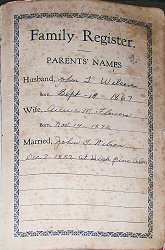 Family Register.
PARENTS' NAMES
Husband, John T. Wilson
Born, Sept - 18 - 1867
Wife, M. Flowers
Born, Nov 14 - 1872
Married, John T. Wilson
Dec 7 - 1892 at High